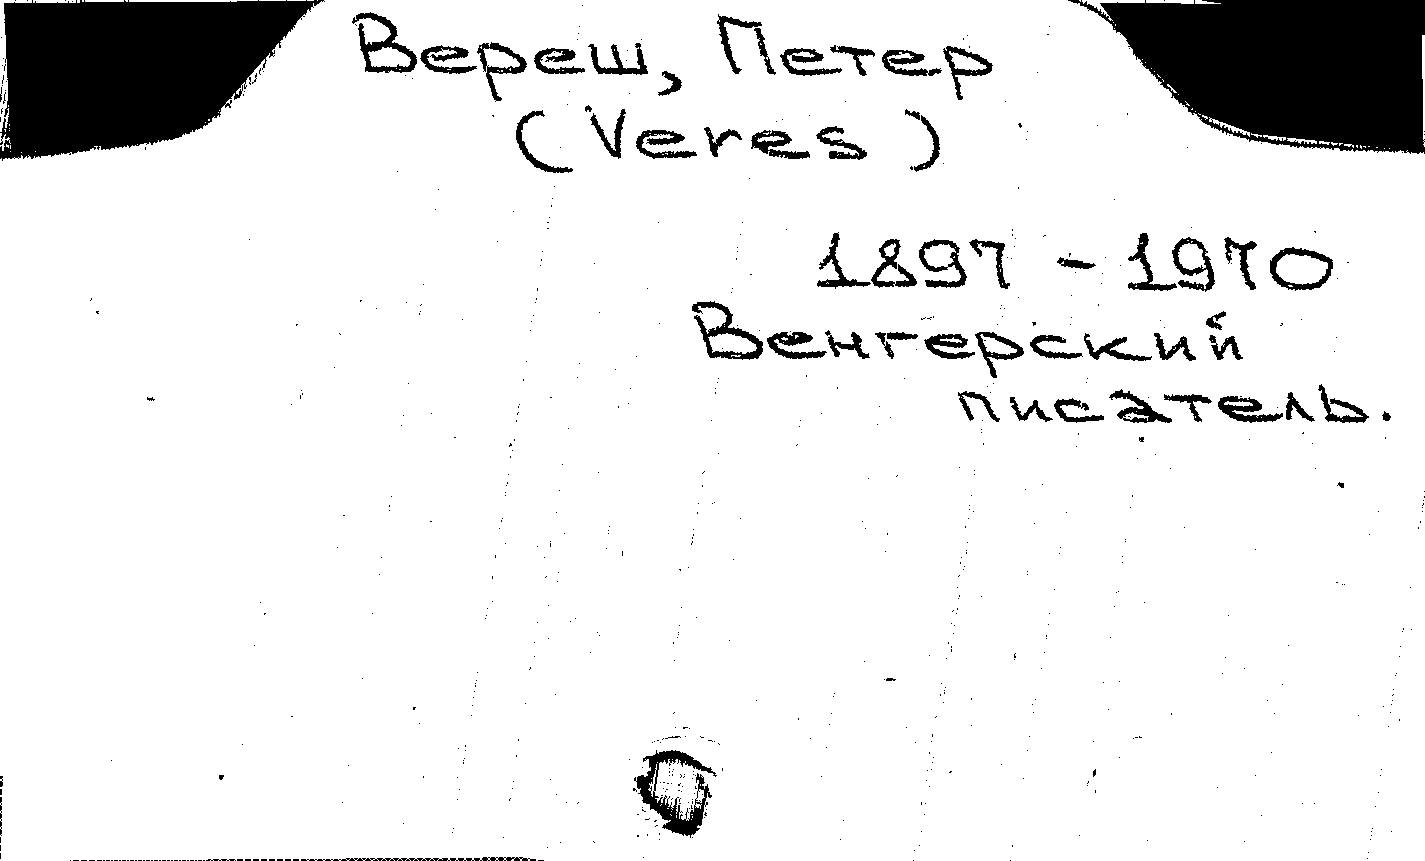 Вереш, Петер
(Veres)
1897 - 1970
Венгерский
писатель.